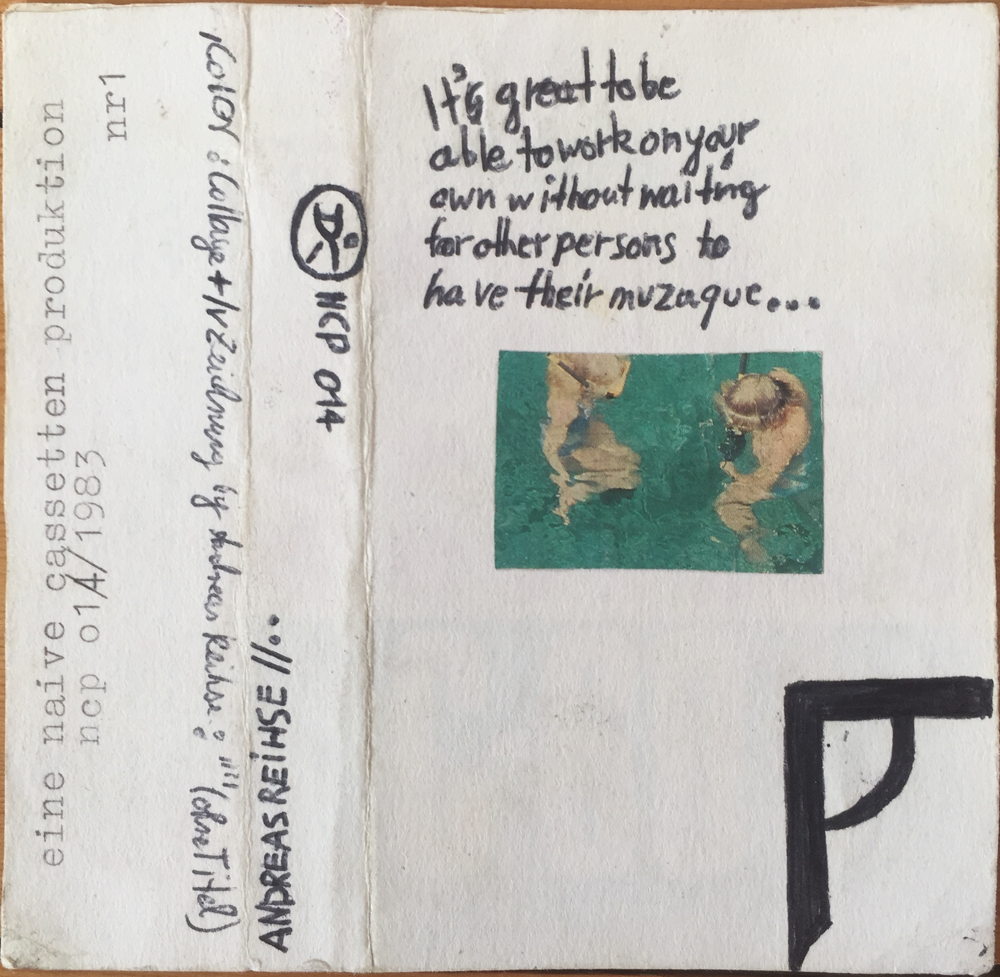 It's great to be
able to work on your
own without waiting
for other persons to
have their muzaque...
NCP 014
ANDREAS REIHSE //..
Collage + Zeichnung by Andreas Reihse : """ (ohne Titel)
eine naive cassetten produktion
ncp o14/1983
nr1